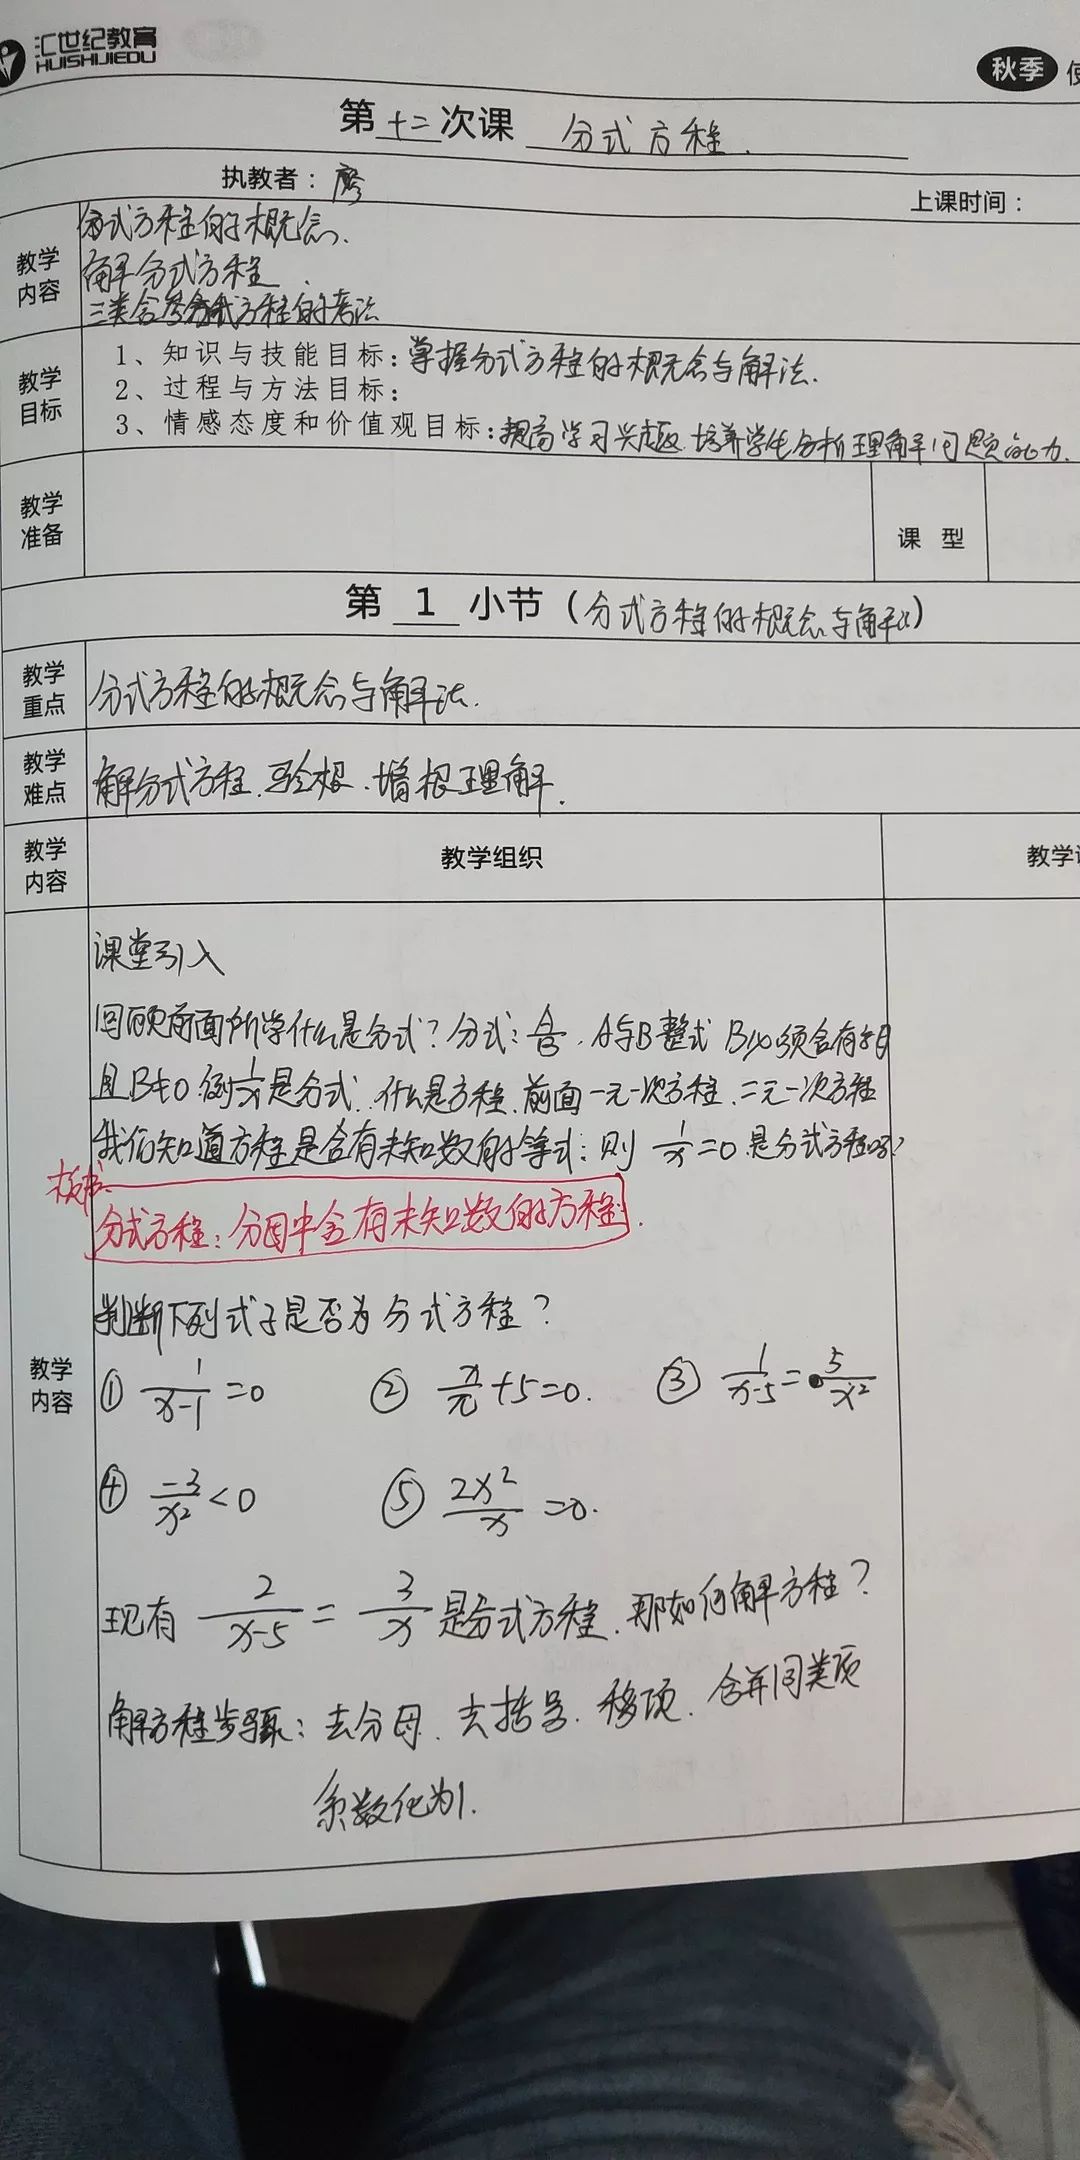 汇世纪教育
HUISHIJIEDU
秋季
第 十二 次课 分式方程.
执教者：廖
上课时间：
教学内容
分式方程的概念.
解分式方程.
三类含参分式方程的考法
教学目标
1、知识与技能目标：掌握分式方程的概念与解法.
2、过程与方法目标：
3、情感态度和价值观目标：提高学习兴趣.培养学生分析理解问题能力.
教学准备
课 型
第 1 小节（分式方程的概念与解法）
教学重点
分式方程的概念与解法.
教学难点
解分式方程.验根.增根理解.
教学内容
教学组织
教学
课堂引入
回顾前面所学什么是分式？分式：A/B，A与B整式 B必须含有字母
且B≠0 例1/x是分式.什么是方程.前面一元一次方程.二元一次方程
我们知道方程是含有未知数的等式：则 1/x=0 是分式方程吗？
板书
分式方程：分母中含有未知数的方程.
判断下列式子是否为分式方程？
教学内容
① 1/(x-1)=0 ② x/π+5=0. ③ 1/(x-5)=5/x²
④ -3/x²<0 ⑤ 2x²/x=0.
现有 2/(x-5)=3/x 是分式方程.那如何解方程？
解方程步骤：去分母.去括号.移项.合并同类项
系数化为1.